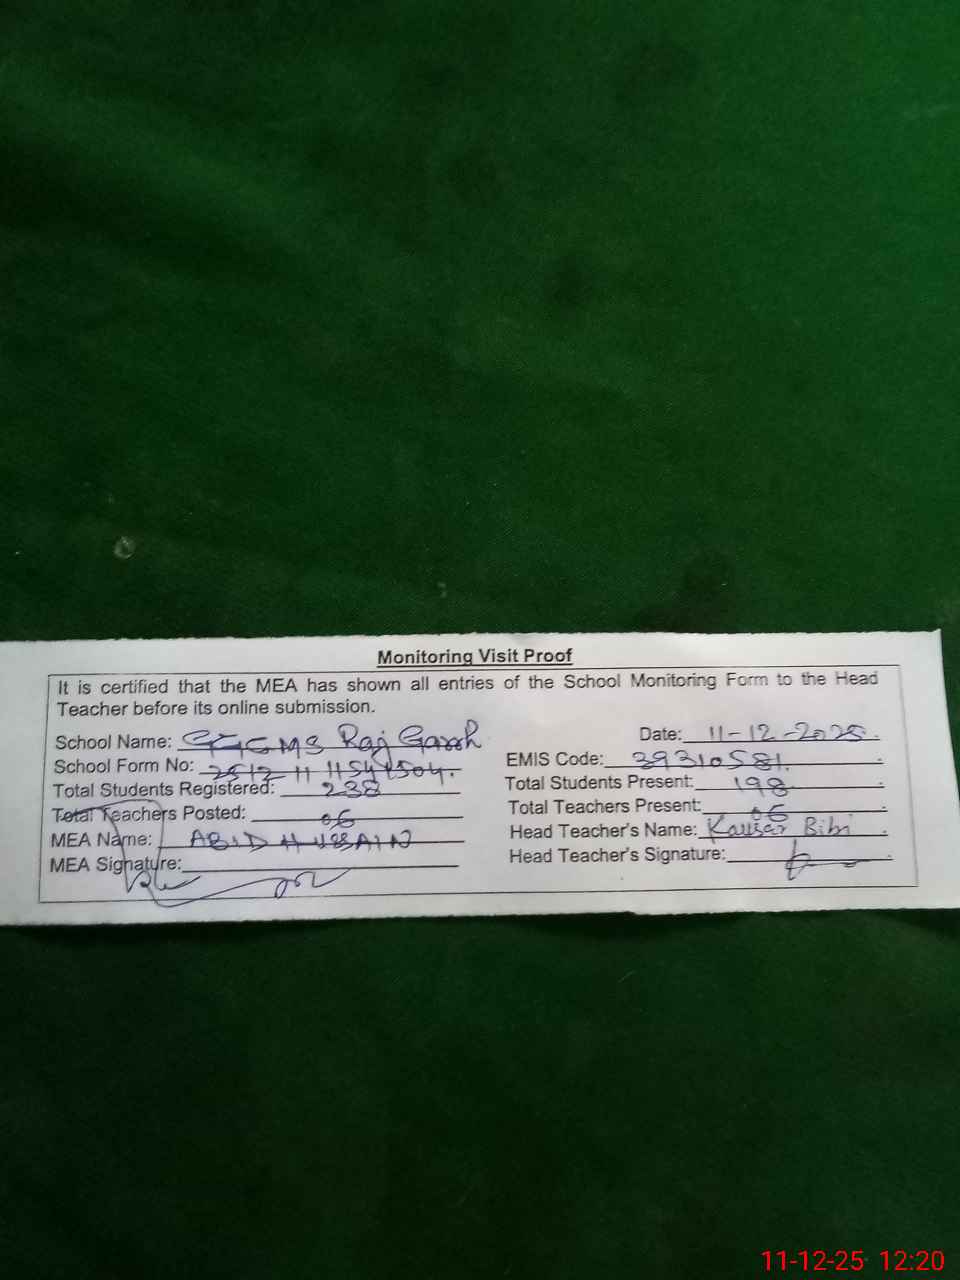 Monitoring Visit Proof
It is certified that the MEA has shown all entries of the School Monitoring Form to the Head
Teacher before its online submission.
School Name: GGCMS Raj Garh
Date: 11-12-2025
School Form No:
EMIS Code: 39310581
Total Students Registered: 238
Total Students Present: 198
Total Teachers Posted: 06
Total Teachers Present: 06
MEA Name: ABID HUSSAIN
Head Teacher's Name: Kausar Bibi
MEA Signature:
Head Teacher's Signature:
11-12-25 12:20